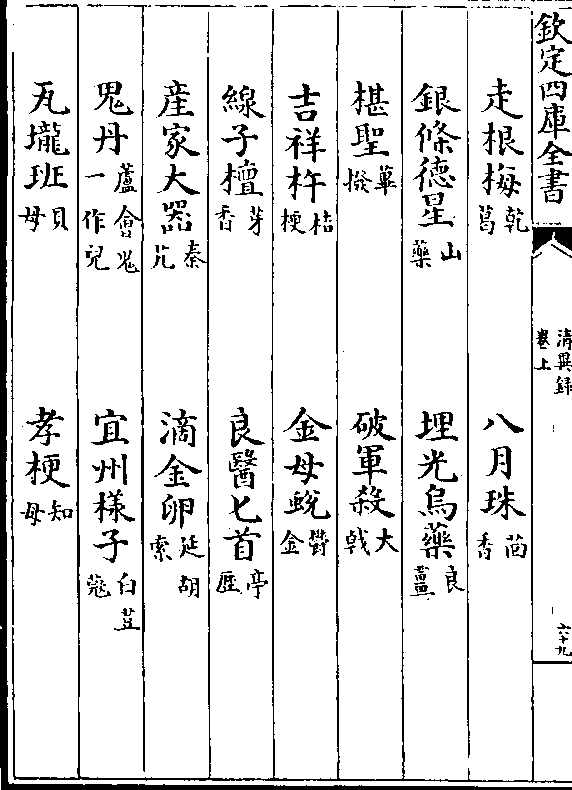 欽定四庫全書
清異録
卷上
六十九
走根梅乾葛 八月珠茴香
銀條德星山藥 埋光烏藥良薑
椹聖蓽撥 破軍殺大戟
吉祥杵桔梗 金母蛻鬱金
線子檀芽香 良醫匕首亭歷
産家大器秦艽 滴金卵延胡索
鬼丹蘆會鬼一作兒 宜州様子白荳蔻
瓦壠班貝母 孝梗知母